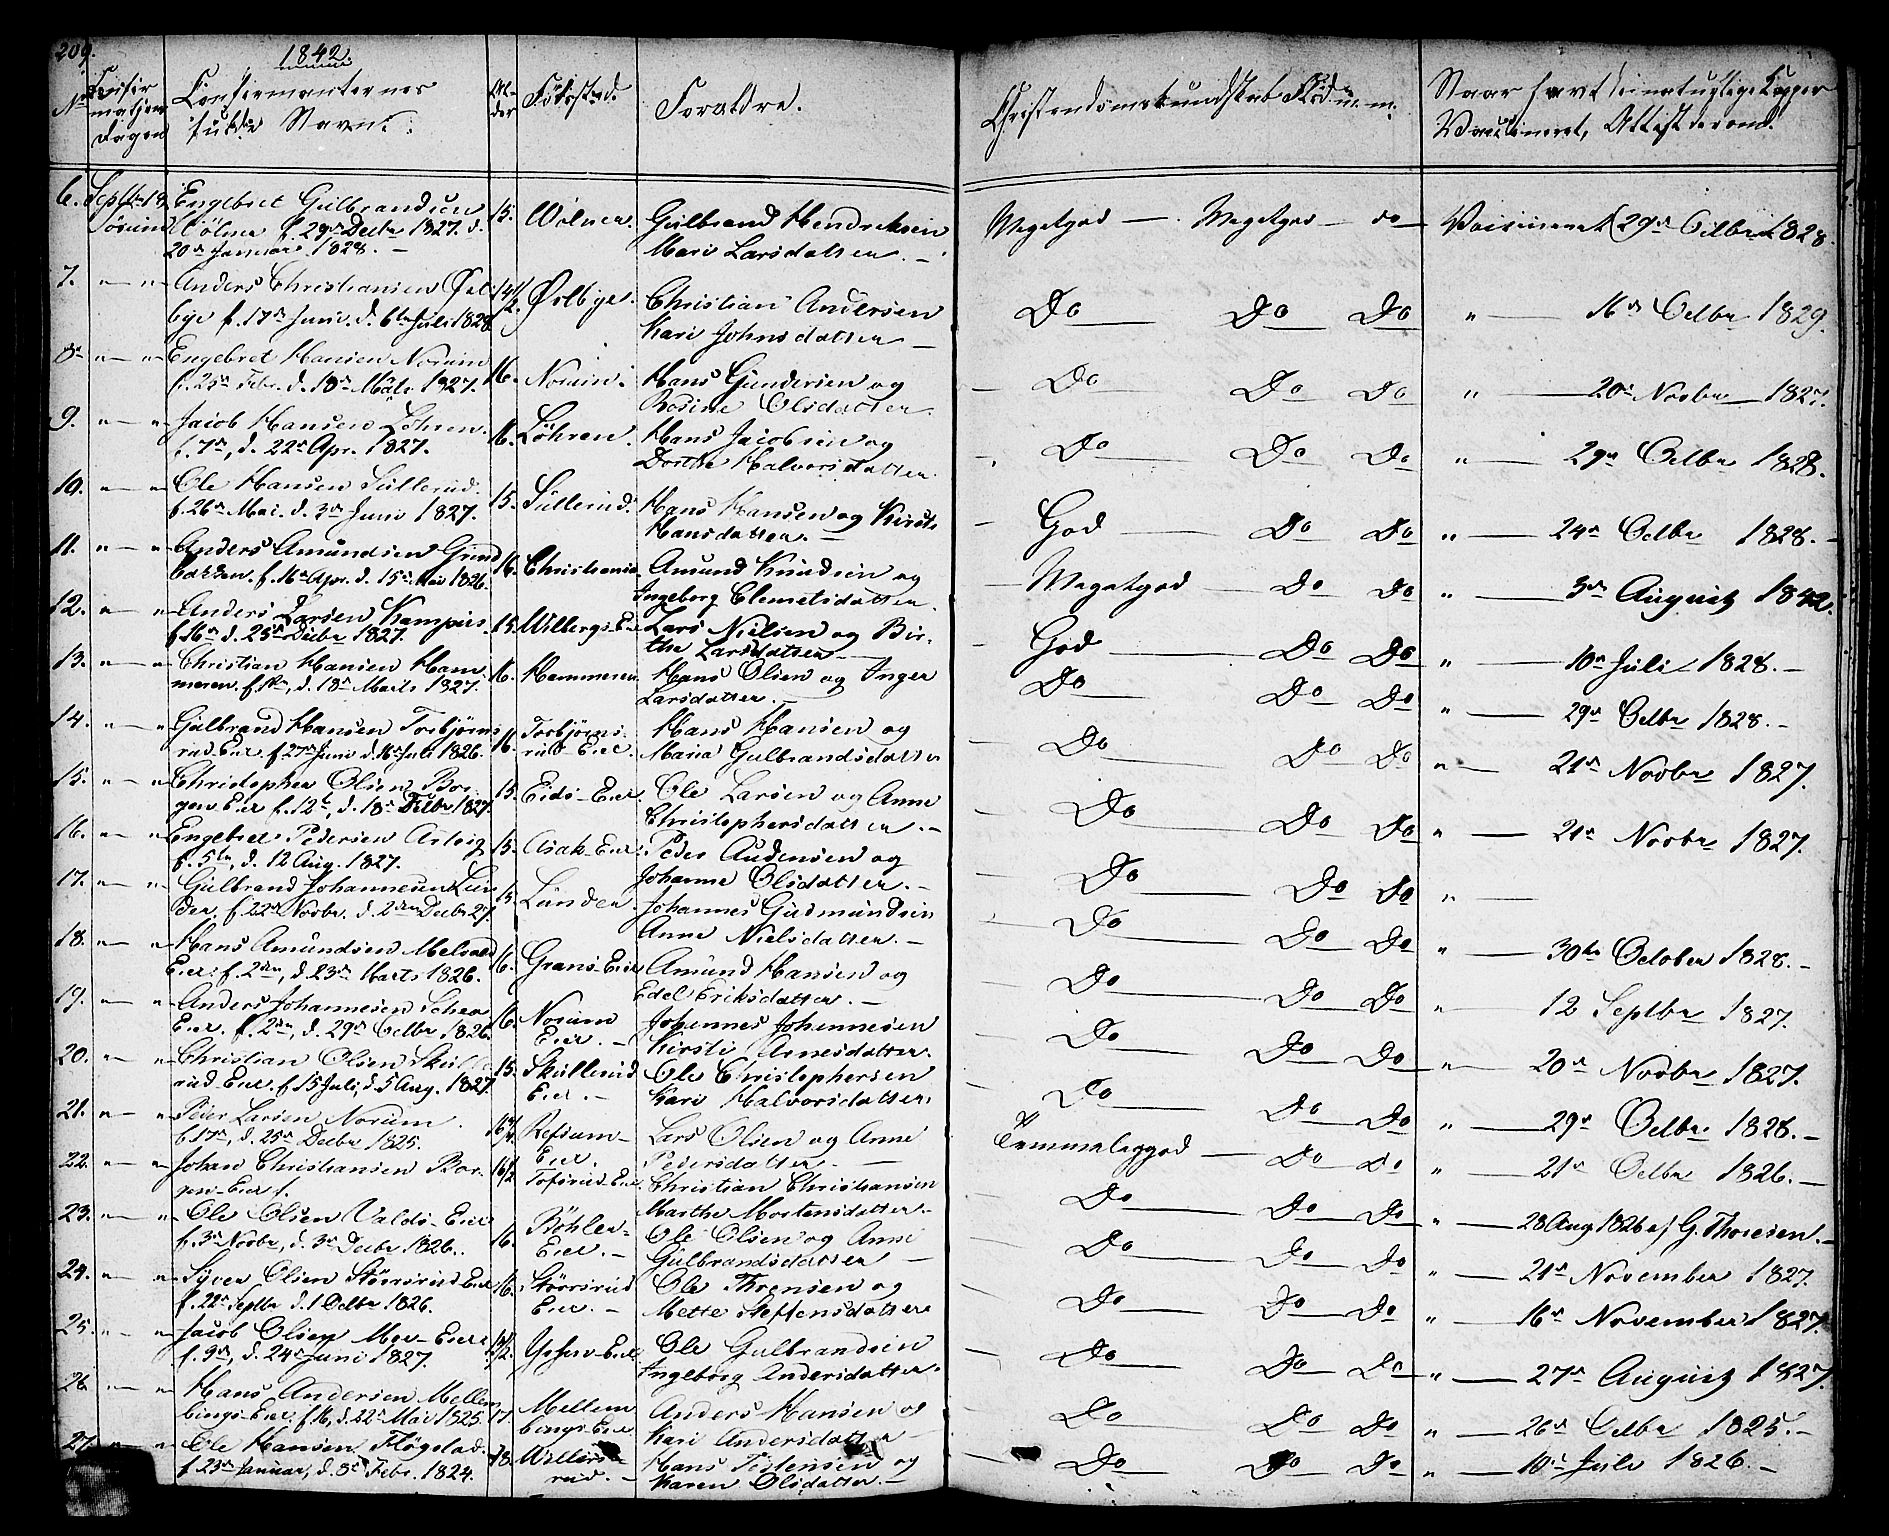 209.
1842.
No
Confirmanternes
fulde Navne.
Alder
Fødested.
Forældre.
Christendomskundskab
Vaccineret, Attest derom.
6. Septbr 18. Engebret Gulbrandsen 15. Wølner. Gulbrand Hendriksen Megetgod — Megetgod — do — Vaccineret 29de Octbr 1828.
Sørum Wølner f. 29de Decbr 1827. d. Mari Larsdatter. —
20de Januari 1828. —
7. " — " Anders Christiansen Ørl- 14 1/2 Ørlbye. Christian Andersen Do Do Do " — 16de Octbr 1829.
bye f. 17de Juni. d. 6te Juli 1828 Kari Johnsdatter —
8. " — " Engebret Hansen Norum 16. Norum. Hans Gundersen og — Do Do Do " — 20de Novbr 1827.
f. 25de Febr. d. 18de Marts 1827. Rosine Olsdatter.
9. " — " Jacob Hansen Løhren. 16. Løhren. Hans Jacobsen og Do Do Do " — 29de Octbr 1828.
f. 7de, d. 22de Apr. 1827. Dorthe Halvorsdatter
10. " — " Ole Hansen Sullerud. 15. Sullerud. Hans Hansen og Kirsti — God Do Do " — 24de Octbr 1828. —
f. 26de Mai. d. 3de Juni 1827. Hansdatter. —
11. " — " Anders Amundsen Grim- 16. Christiania. Amund Knudsen og — Megetgod — Do Do " — 3de August 1842.
f. 16de Apr. d. 15de Mai 1826. Ingeborg Clemetsdatter.
12. " — " Anders Larsen Kampus. 15. Wilbergs-Eier Lars Nielsen og Bir- God Do Do " — 10de Juli 1828. —
f. 16de d. 25de Decbr 1827. the Larsdatter —
13. " — " Christian Hansen Ham- 16. Hammeren Hans Olsen og Inger Do Do Do " — 29de Octbr 1828. —
meren. f. 1ste, d. 18de Marts 1827. Larsdatter —
14. " — " Gulbrand Hansen Torbjørns- 16. Torbjørns- Hans Hansen og — Do Do Do " — 21de Novbr 1827.
rud-Eier f. 27de Juni d. 16de Juli 1826. rud-Eier. Maria Gulbrandsdatter
15. " — " Christopher Olsen Bor- 15. Eids-Eier. Ole Larsen og Anne Do Do Do " — 21de Novbr 1827.
gen Eier f. 12te, d. 18de Febr 1827. Christophersdatter. —
16. " — " Engebret Pedersen 15. Asak-Eier. Peder Audensen og Do Do Do " —
f. 5te, d. 12 Aug. 1827. Johanne Olsdatter. —
17. " — " Gulbrand Johannesen Lun- 15. Lunder. Johannes Gudmundsen — Do Do Do " — 30te October 1828. —
der. f. 22de Novbr. d. 2den Decbr 27. Anne Nielsdatter. —
18. " — " Hans Amundsen 16. Grans-Eier Amund Hansen og Do Do Do " — 12 Septbr 1827.
Eier. f. 2den, d. 23de Marts 1826. Edel Eriksdatter. —
19. " — " Anders Johannesen 16. Norum Johannes Johannesen Do Do Do " — 20de Novbr 1827.
Eier. f. 2den, d. 29de Octbr 1826 Eier. — Kirsti Arnesdatter.
20. " — " Christian Olsen Skulle- 15. Skullerud Ole Christophersen Do Do Do " — 29de Octbr 1828. —
rud-Eier. f. 15 Juli, d. 5 Aug. 1827 Eier. — Kari Halvorsdatter.
21. " — " Peder Larsen Norum. Refsum- Lars Olsen og Anne Temmeliggod — Do do " — 21de Octbr 1826. —
f. 17de, d. 25de Decbr 1825. Eier. Pedersdatter. —
22. " — " Johan Christiansen Bor- 16 1/2 Tofsrud-Eier Christian Christiansen Do Do Do " — 28 Aug 1826 af G. Thoresen. —
gen-Eier f. Marthe Mortensdatter.
23. " — " Ole Olsen Valds-Eier 16. Bøhler- Ole Olsen og Anne Do Do Do " — 21de November 1827.
f. 3de Novbr, d. 3de Decbr 1826. Eier. — Gulbrandsdatter —
24. " — " Syver Olsen Størrsrud-Eier 16. Størrsrud Ole Thronsen og Do Do Do " — 16de November 1827.
f. 22de Septbr d. 1 Octbr 1826. Eier. — Mette Steffensdatter
25. " — " Jacob Olsen Moe-Eier Ole Gulbrandsen — Do Do Do " — 27de August 1827.
f. 9de, d. 24de Juni 1827. Ingeborg Andersdatter.
26 " — " Hans Andersen Mellem- 17. Mellem Anders Hansen og — Do Do Do " — 26de Octbr 1825. —
bings-Eier. f. 16, d. 22de Mai 1825. bings-Eier Kari Andersdatter —
27. " — " Ole Hansen Fløgstad. 18. Willers- Hans Torstensen og — Do Do Do " — 10de Juli 1826. —
f. 23de Januar, d. 8de Febr. 1824. rud. — Karen Olsdatter. —